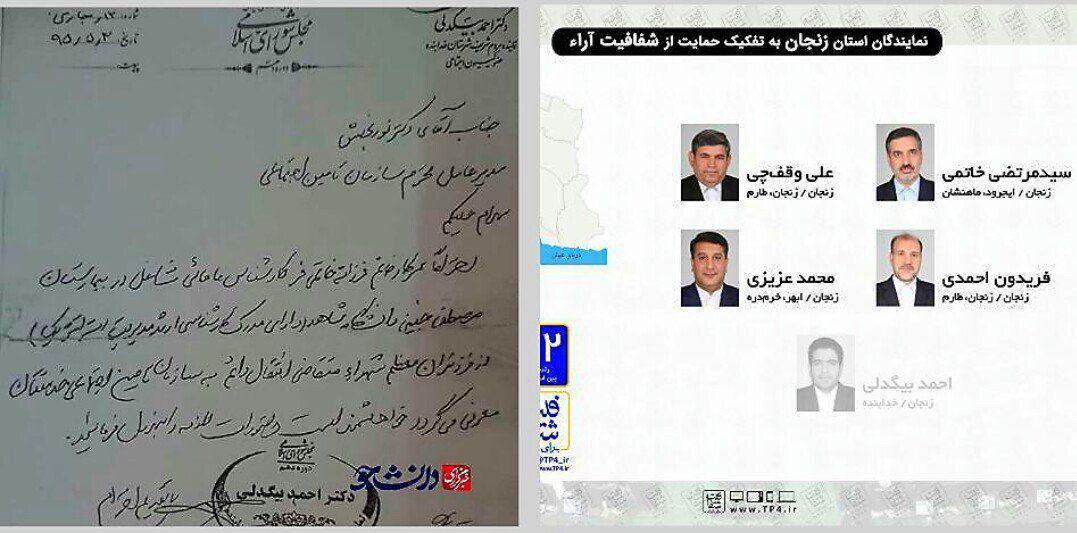 دکتر احمد بیگدلی
نماینده مردم شریف شهرستان خدابنده
عضو کمیسیون اجتماعی
مجلس شورای اسلامی
دوره دهم
تاریخ ۹۵/۵/۳
جناب آقای دکتر نوربخش
مدیرعامل محترم سازمان تامین اجتماعی
سلام علیکم
احتراما سرکار خانم فرزانه کارشناس مامائی شاغل در بیمارستان
مصطفی خمینی دانشگاه شاهد دارای مدرک کارشناسی ارشد مدیریت
از فرزندان معظم شهداء متقاضی انتقال دائم به سازمان تامین اجتماعی خدمتتان
معرفی می گردد خواهشمند است دستورات لازمه را مبذول فرمائید.
مجلس شورای اسلامی
دوره دهم
دکتر احمد بیگدلی
خبرگزاری دانشجو
نمایندگان استان زنجان به تفکیک حمایت از شفافیت آراء
سیدمرتضی خاتمی
زنجان / ایجرود، ماهنشان
علی وقف‌چی
زنجان / زنجان، طارم
فریدون احمدی
زنجان / زنجان، طارم
محمد عزیزی
زنجان / ابهر، خرم‌دره
احمد بیگدلی
زنجان / خدابنده
دریای عمان
۲
@TP4_ir
www.TP4.ir
www.TP4.ir